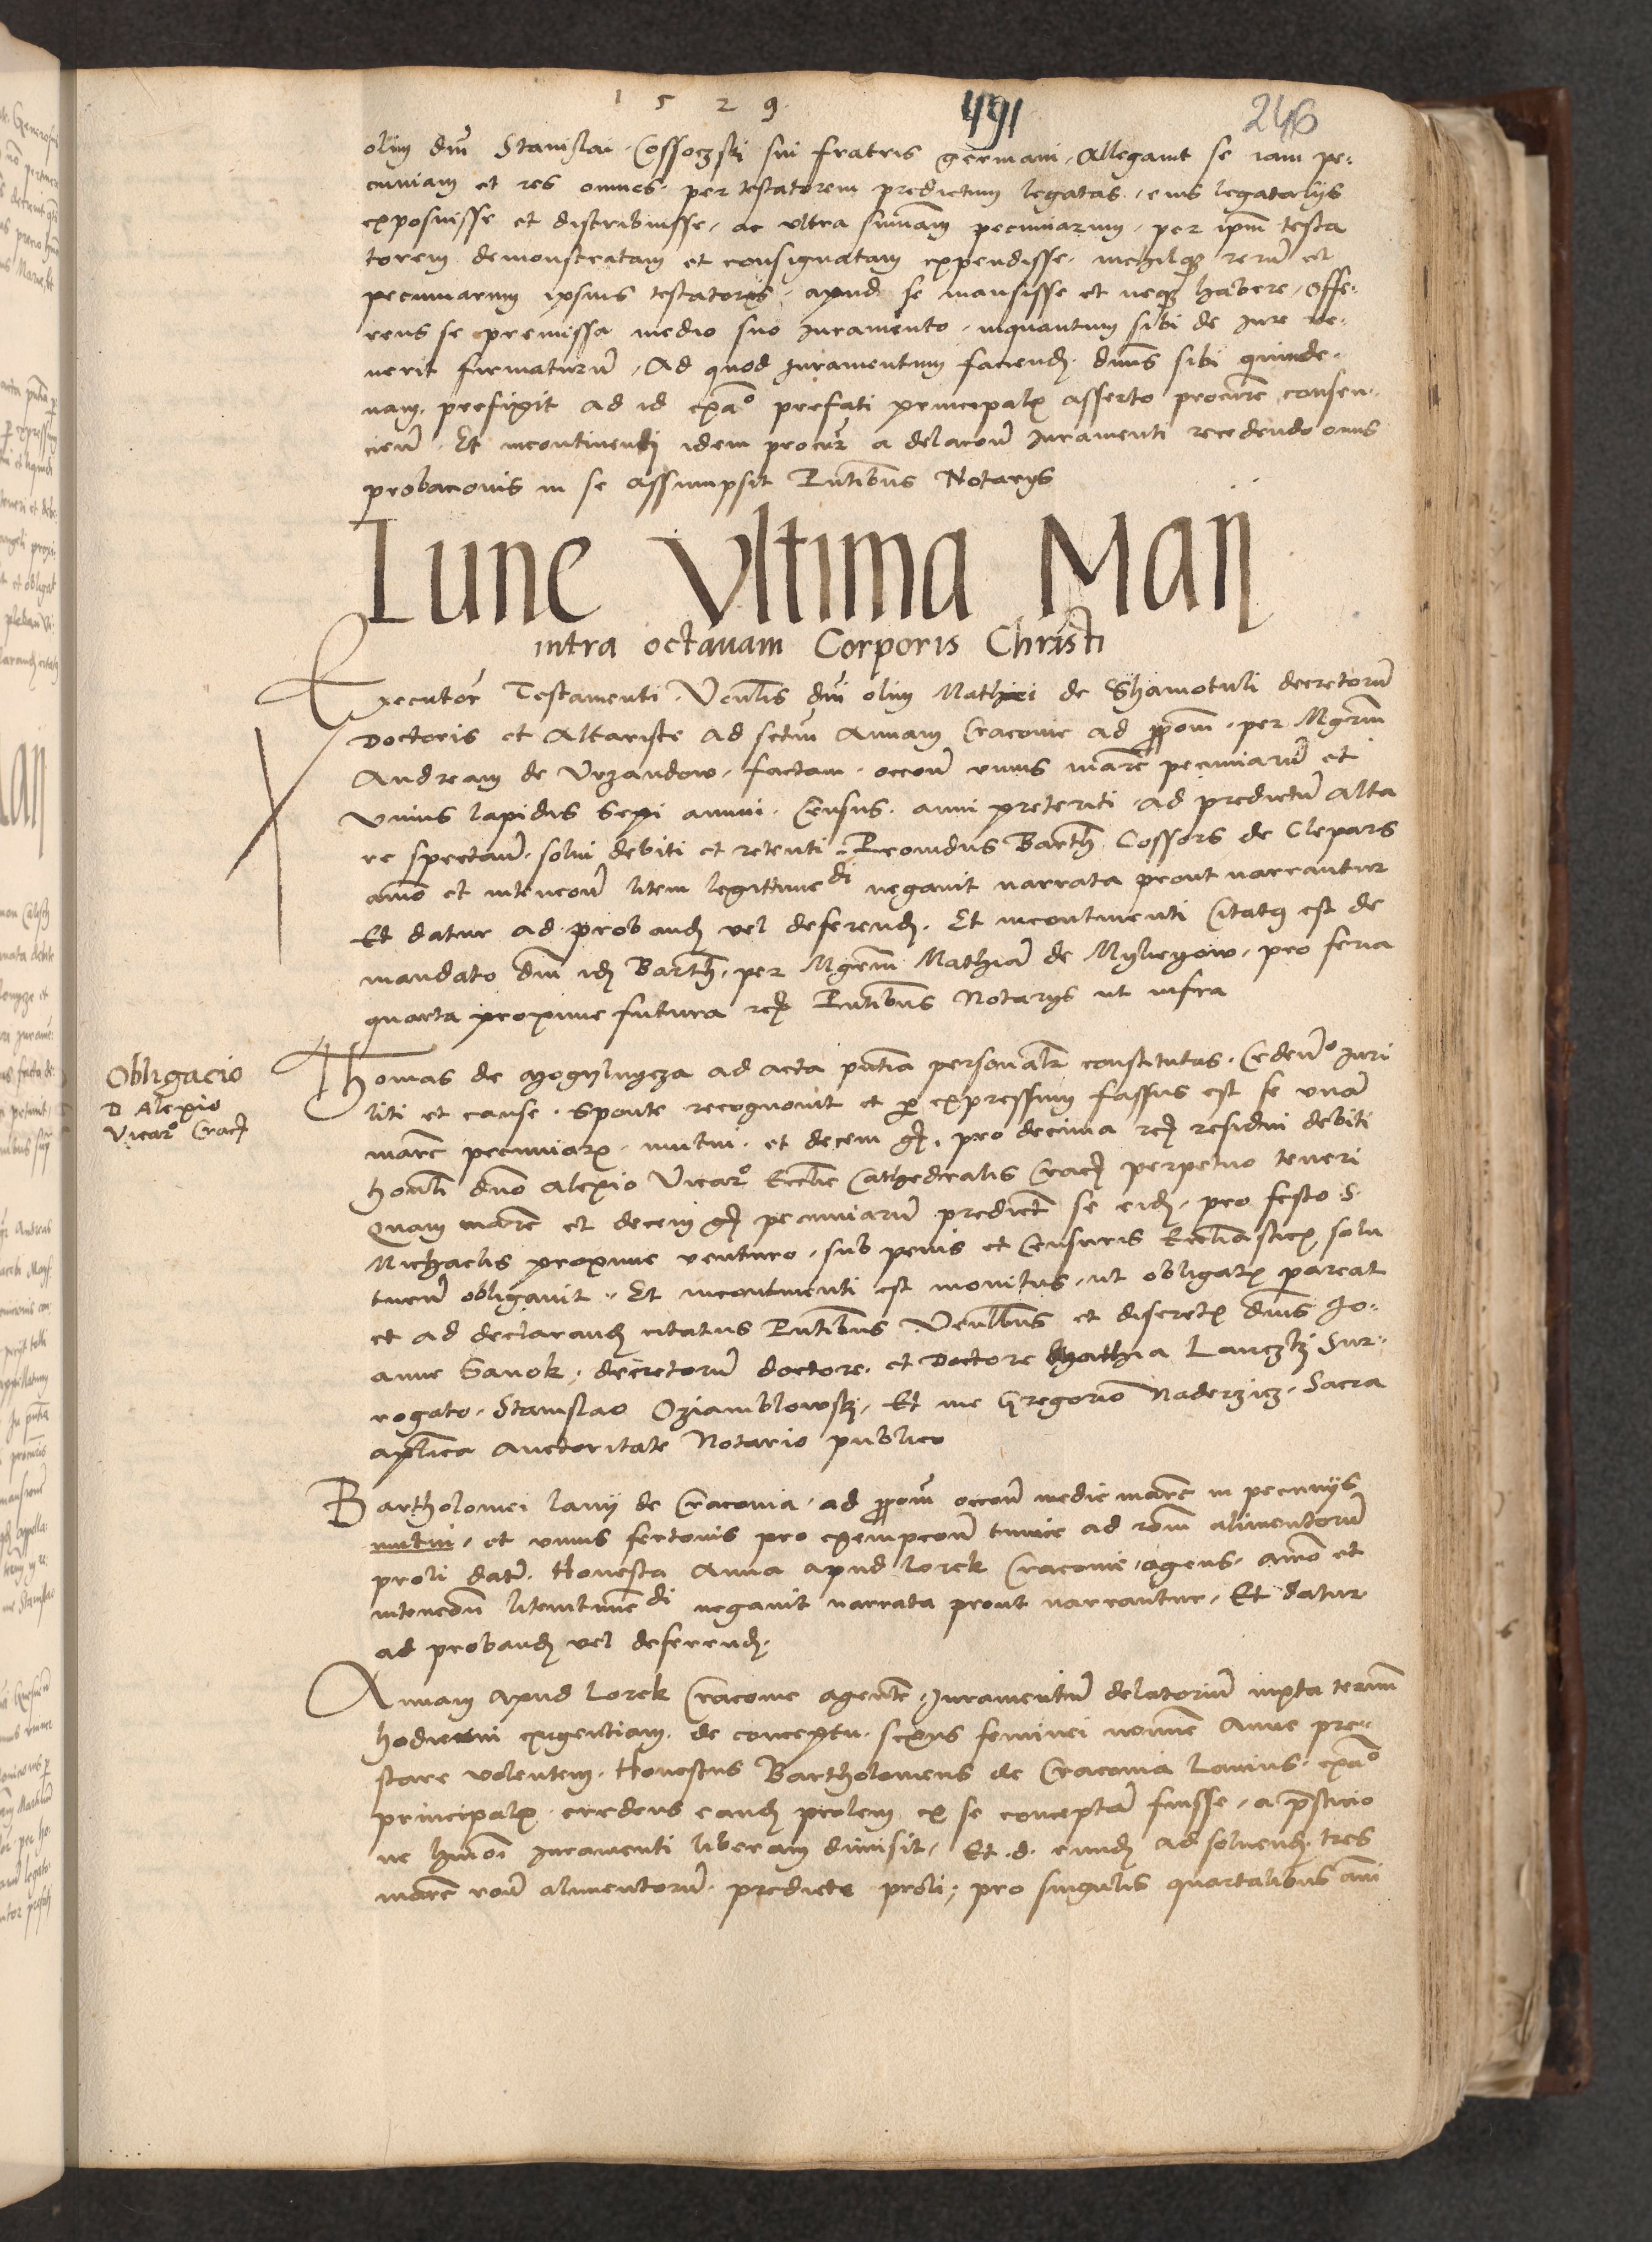 1 5 2 9
491
246
olim dnī Stanislai Cossoczski sui fratris germani, Allegavit se iam pe:
cuniam et res omnes per testatorem predictum legatas, eius legatarijs
exposuisse et distribuisse, ac ultra sūmam pecuniarum, per ipm̄ testa
torem demonstratam et consignatam expendisse, nichilqȝ rerū et
pecuniarum ipsius testatoris, apud se mansisse et neqȝ habere, offe:
rens se premissa medio suo Juramento, inquantum sibi de Jure ve:
nerit firmaturū, Ad quod Juramentum faciendȝ dnūs sibi quinde:
nam prefigit ad id exā° prefati principalȝ asserto procuīre consen:
cien̄. Et incontinenti idem procur̄ a delacōn Juramenti recedendo onus
probacionis in se assumpsit Pn̄tibus Notarijs
Lune Vltima Maij
intra octauam Corporis Christi
Executor̄ Testamenti Ven̄lis dnī olim Mathiei de Shamotuli decretorū
Doctoris et Altariste ad sctām Annam Cracouie ad ppōm̄, per Mgr̄m
Andream de Vrzandow, factam occōn̄ vnius marce pecuniarū et
Vnius lapidis Sepi annui, Census anni preteriti, ad predictū Alta
re spectan̄. solui debiti et retenti, Prouidus Barthȝ Cossors de Clepars
aīmo et intencōn̄ litem legittime di negauit narrata prout narrantur
Et datur ad probandȝ vel deferendȝ. Et incontinenti Citatus est de
mandato dnī idȝ Barthȝ. per Mgr̄m Mathiā de Myleyow, pro feria
quarta proxime futura rcȝ Pn̄tibus Notarijs ut infra
Obligacio
D Alexio
Vicar° Cracȝ
Thomas de Mogylnycza ad acta pn̄tia personalr̄ constitutus, Ceden̄° Juri
liti et cause, sponte recognouit et ꝑ expressum fassus est se vnā
marc̄ pecuniarȝ mutui, et decem gȝ, pro decima rcȝ residui debiti
honrlī dno Alexio Vicar° Eccl̄ie Cathedralis Cracȝ perpetuo teneri
Quam marc̄ et decem gȝ pecuniarū predict̄ se eidȝ, pro festo S.
Michaelis proxime venturo, sub penis et Censuris Eccl̄iasticȝ solu
turū obligauit, Et incontinenti est monitus, ut obligatȝ pareat
et ad declarandȝ citatus Pn̄tibus Ven̄lbus et discretȝ dnis Jo:
anne Sanok, decretorū doctore, et Doctore Mathia Lanczkȝ Sur:
rogato, Stanislao Oziamblowskȝ, Et me Gregorio Naderzicz, Sacra
apl̄ica auctoritate Notario publico
Bartholomei lanij de Cracouia, ad ppōm̄ occōn̄ medie marce in pecunijs
mutui, et vnius fertonis pro exempcōn̄ tunice ad rōm̄ alimentorū
proli dat̄. Honesta Anna apud Lorek Cracouie agens, aīmo et
intencōn̄ litem̄time di negauit narrata prout narrantur, Et datur
ad probandȝ vel deferendȝ.
Annam apud Lorek Cracouie agentē, Juramentum delatorium iuxta termī
hodierni exigentiam, de conceptu sexus feminei nomīe Anne pre:
stare volentem, Honestus Bartholomeus de Cracouia Lanius, exā°
principalȝ, credens eandȝ prolem ex se conceptā fuisse, a pr̄sticio
ne hmōi Juramenti liberam dimisit, Et d. eundȝ ad soluendȝ tres
marc̄ rōn̄ alimentorū predicte proli, pro singulis quartalibus anī